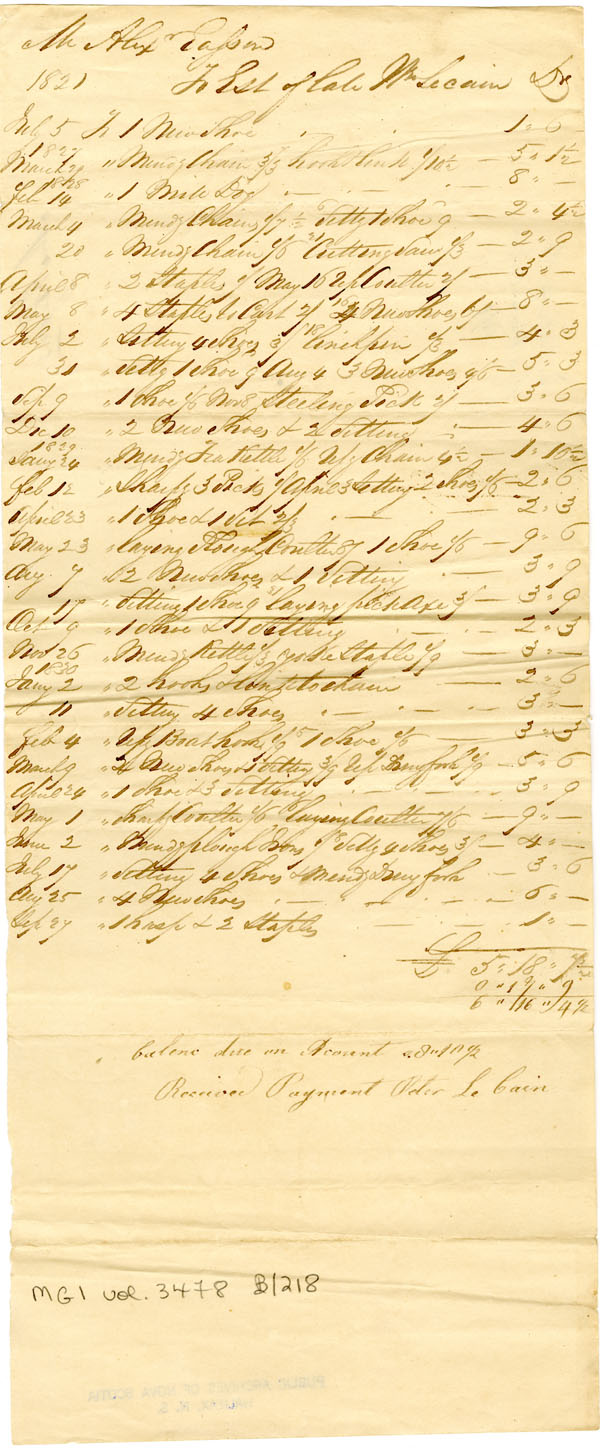 Mr Alexr Easson
1821 To Est of late Wm Lecain Dr
Feby 5 To 1 New Shoe 1 " 6
1827
March 29 " Mendg Chain 3/3 hook & link 1/10½ — 5 " 1½
1828
Feb 14 " 1 Dog — 8 " —
March 4 " Mendg Chain /7½ Settg 1 Shoe 9 — 2 " 4½
20 " Mendg Chain 1/6 Cutting 1/3 — 2 " 9
April 8 " 2 Staples 1/ May 16 Upg Coulter 2/ — 3 " —
May 8 " 4 Staples to Cart 2/ 4 New Shoes 6/ — 8 " —
July 2 " Setting 4 Shoes 3/ linchpin 1/3 — 4 " 3
31 " Settg 1 Shoe 9 Aug 4 3 New Shoes 4/6 — 5 " 3
Sep 9 " 1 Shoe 1/6 Nov 8 Steeling Pick 2/ — 3 " 6
Dec 10 " 2 New Shoes & 2 Setting — 4 " 6
1829
Jany 24 " Mendg Tea Kettle 1/6 Chain 4½ — 1 " 10½
Feb 12 " Sharpg 3 Picks 1/ April 3 Setting 2 Shoes 1/6 — 2 " 6
April 23 " 1 Shoe & 1 Set 2/3 — 2 " 3
May 23 " laying Plough Coulter 8/ 1 Shoe 1/6 — 9 " 6
Aug 7 " 2 New Shoes & 1 Setting — 3 " 9
17 " Setting 1 Shoe 9 laying pick Axe 3/ — 3 " 9
Oct 9 " 1 Shoe & 1 Setting — 2 " 3
Nov 26 " Mendg Kettle Staple /9 — 3 " —
1830
Jany 2 " 2 hooks & chain — 2 " 6
11 " Setting 4 Shoes — 3 " —
Feb 4 " Upg Boathook 1/9 1 Shoe 1/6 — 3 " 3
March 9 " 4 New Shoes Setting 3/9 Upg Dungfork 1/9 — 5 " 6
April 24 " 1 Shoe & 3 Setting — 3 " 9
May 1 " Sharpg Coulter 1/6 laying Coulter 7/6 — 9 " —
June 2 " Mendg plough Irons 1/ Settg 4 Shoes 3/ — 4 " —
July 17 " Setting 4 Shoes & Mendg Dungfork — 3 " 6
Aug 25 " 4 New Shoes — 6 " —
Sep 27 " 1 hasp & 2 Staples — 1 " —
£ 5 " 18 " 7½
0 " 17 " 9
6 " 16 " 4½
" balenc due on Acount
Received Payment Peter Le Cain
MG1 vol. 3478 B/218
PUBLIC ARCHIVES OF NOVA SCOTIA
HALIFAX, N. S.